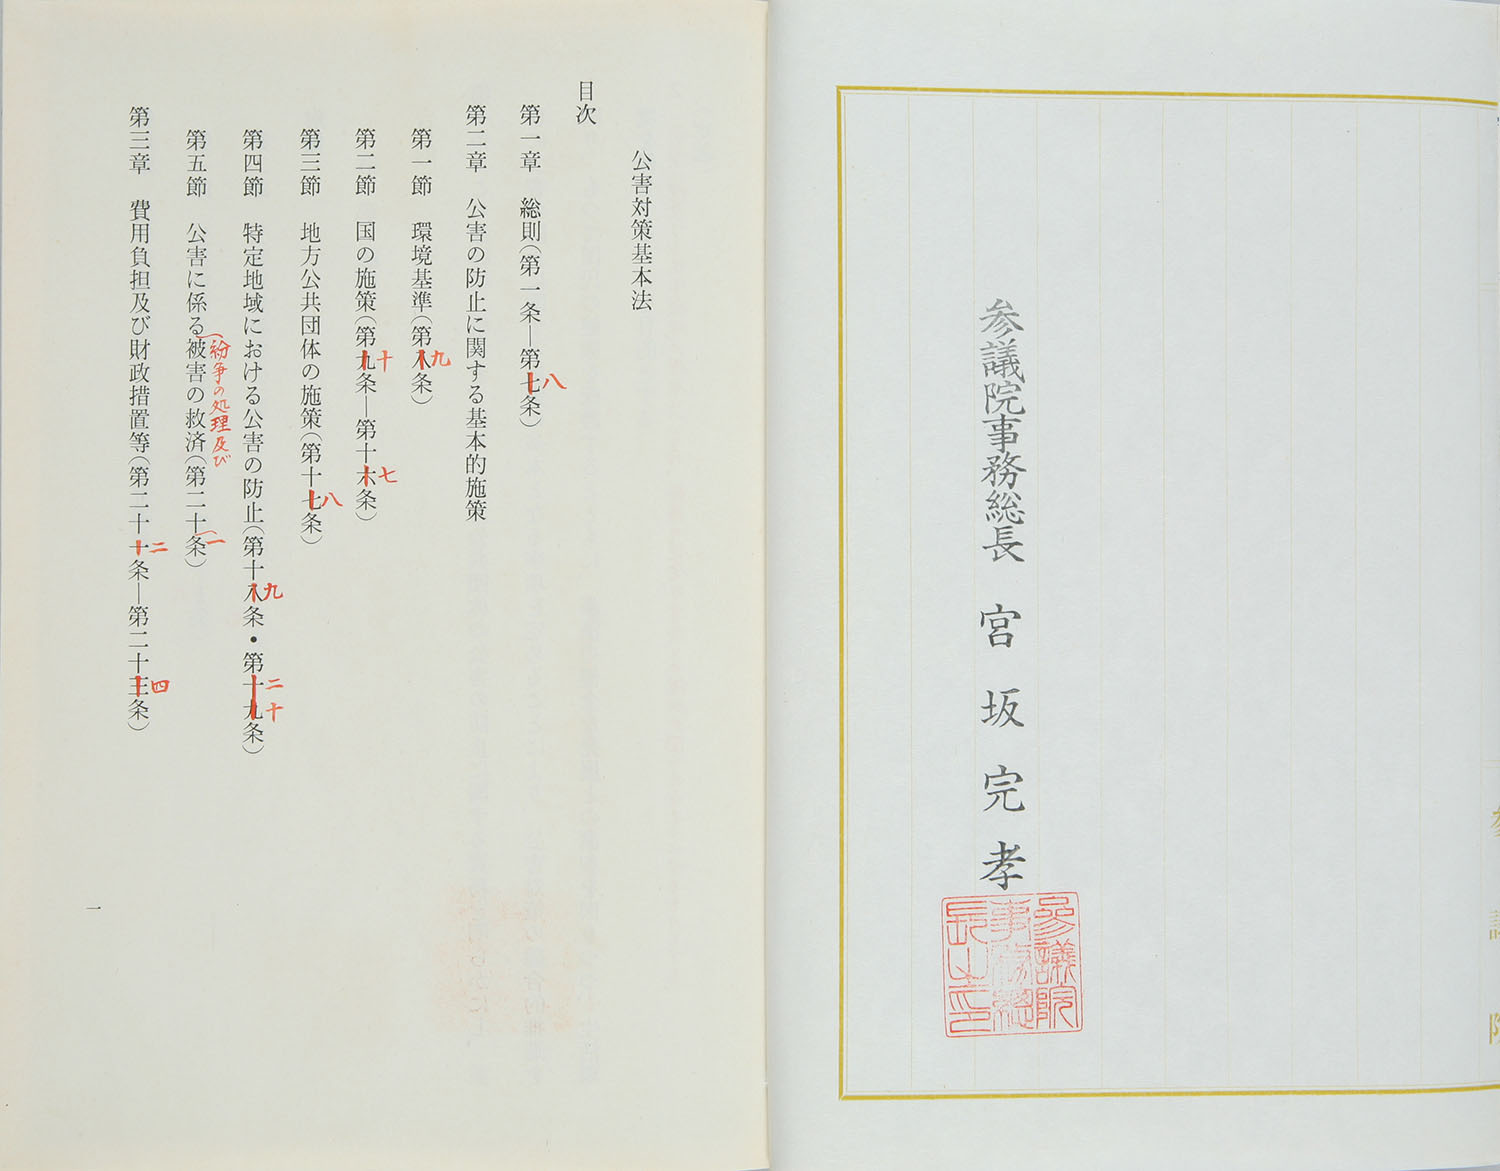 参議院事務総長 宮坂完孝
參議院事務總長之印
参議院
公害対策基本法
目次
第一章 総則(第一条―第七八条)
第二章 公害の防止に関する基本的施策
第一節 環境基準(第八九条)
第二節 国の施策(第九十条―第十六七条)
第三節 地方公共団体の施策(第十七八条)
第四節 特定地域における公害の防止(第十八九条・第十九二十条)
第五節 公害に係る紛争の処理及び被害の救済(第二十一条)
第三章 費用負担及び財政措置等(第二十一二条―第二十三四条)
一